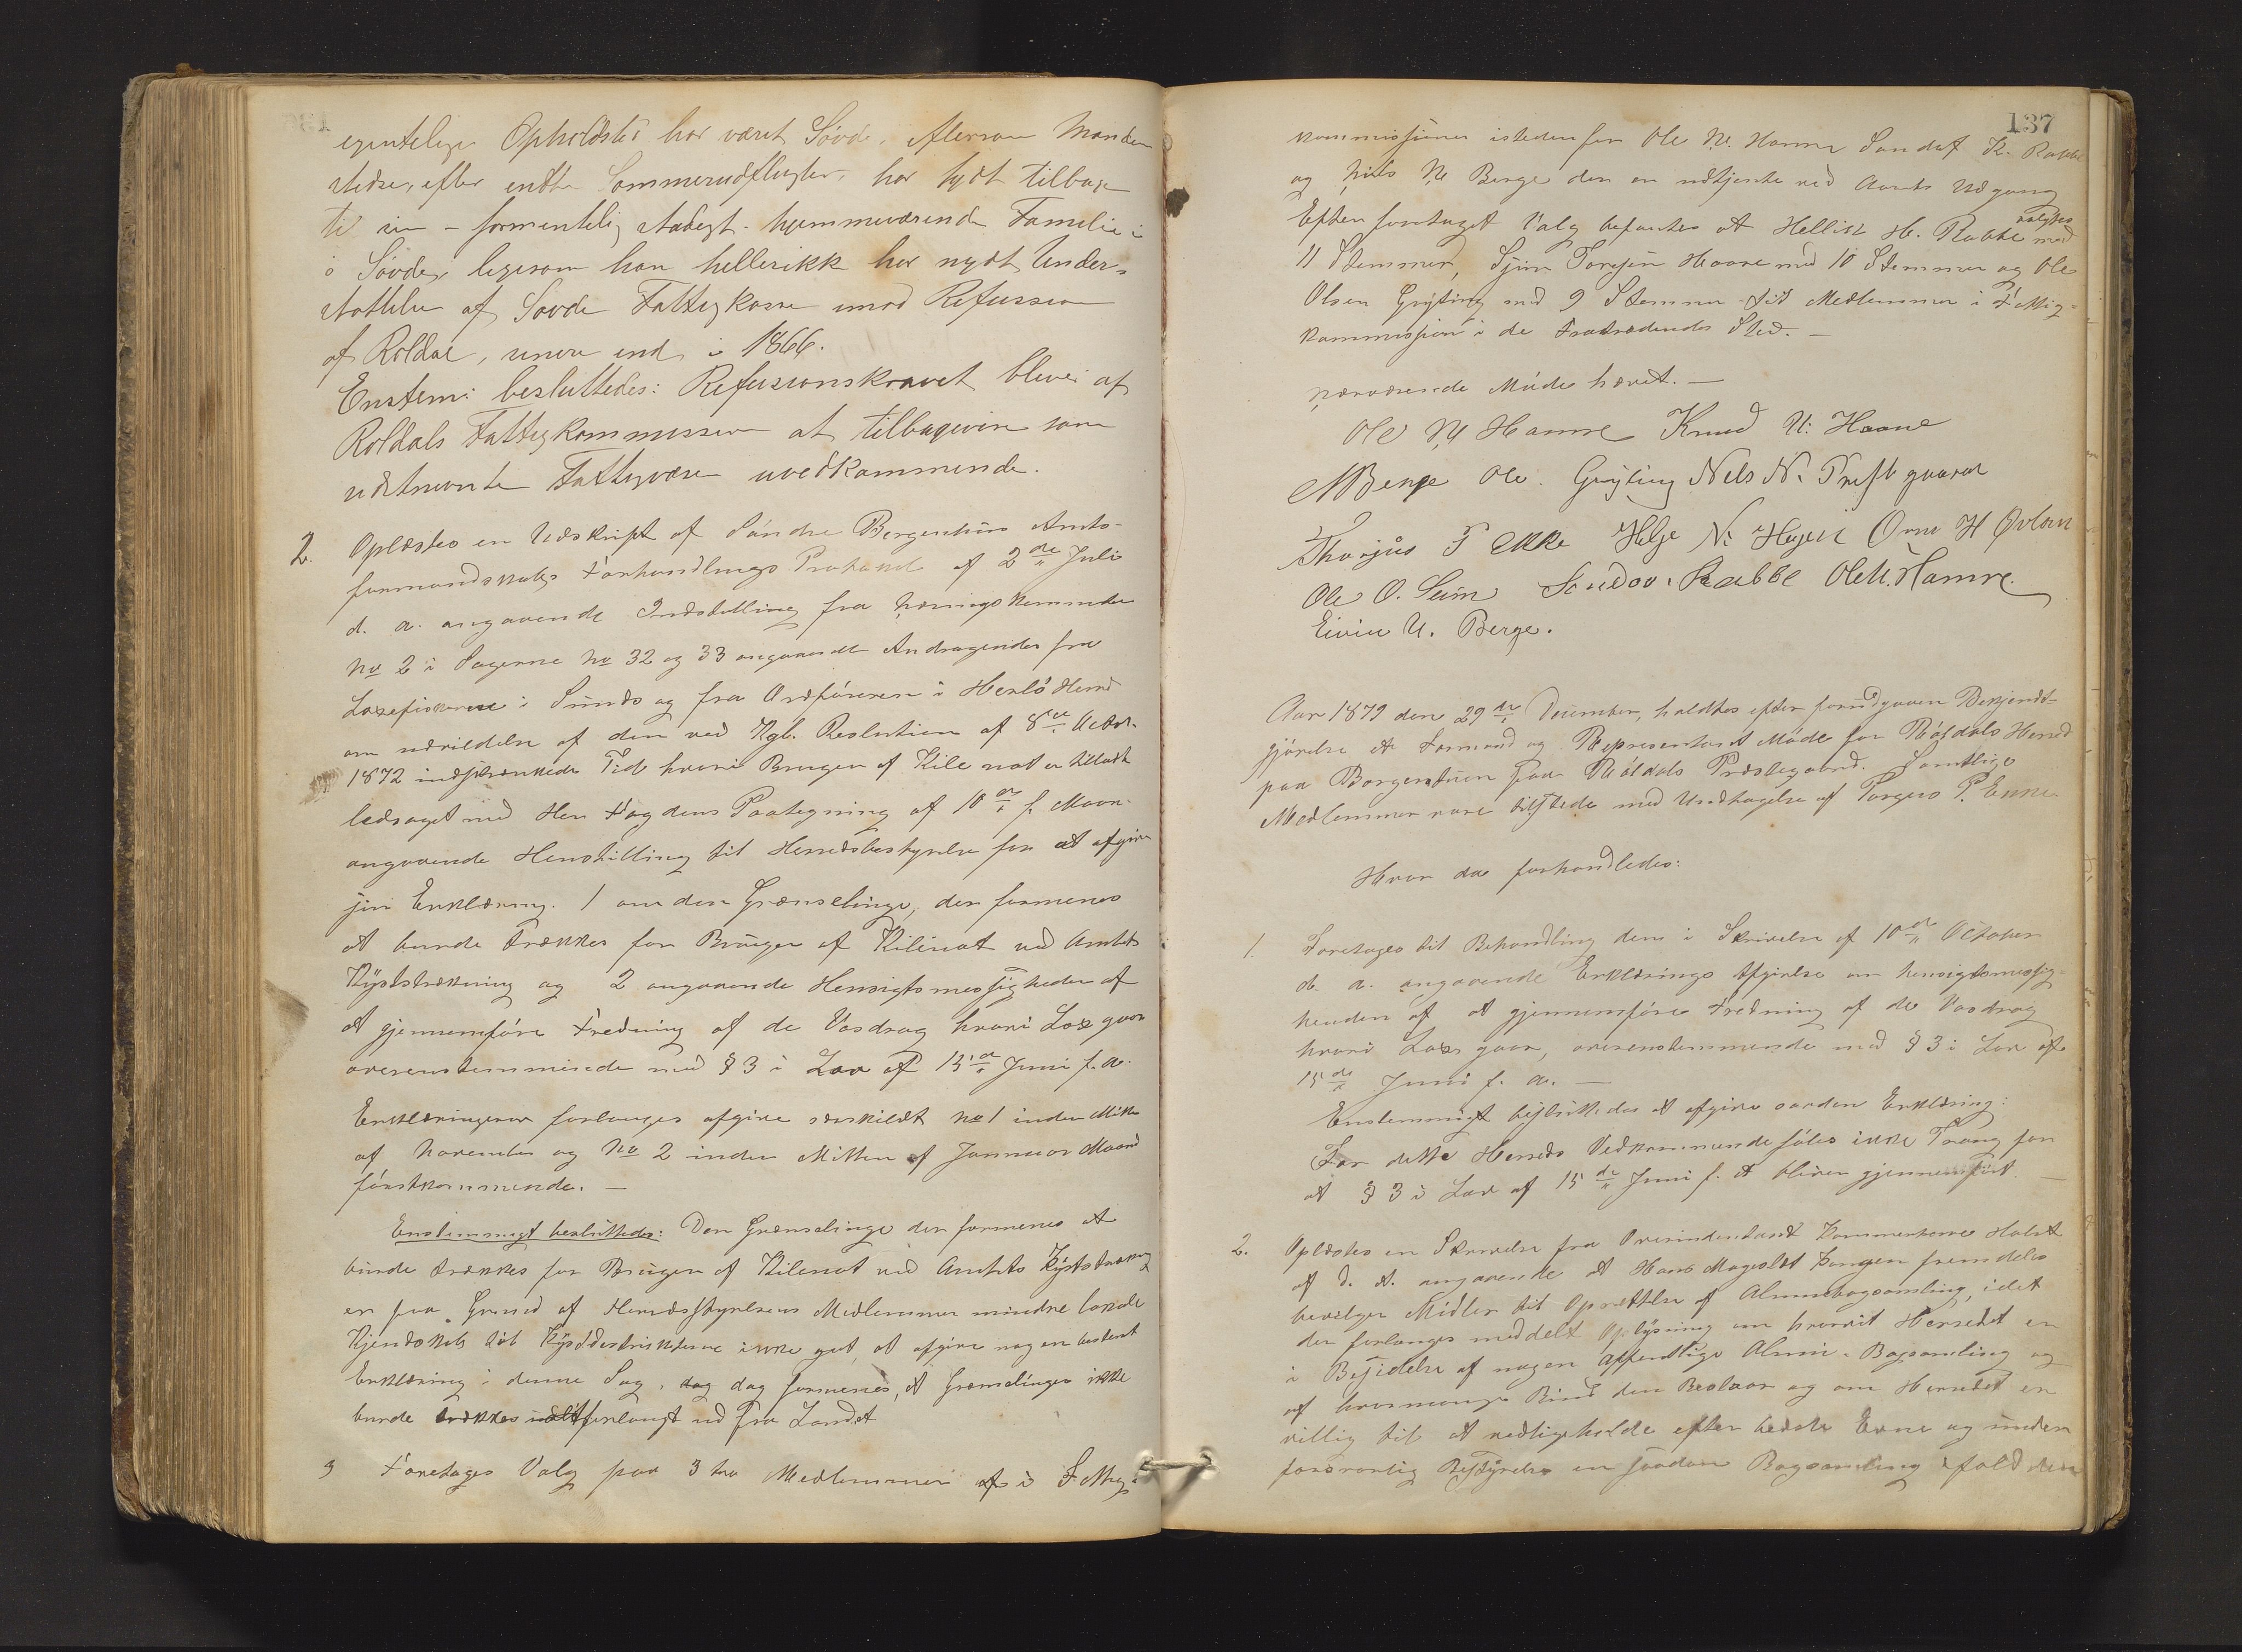 egentlige Opholdsted har været Søvde, eftersom Manden
stedse, efter endte Sommerudflugter, har tydt tilbage
til sin - formentlig stadigt - hjemmeværende Familie i
i Søvde, ligesom han hellerikke har nydt Under-
støttelse af Søvde Fattigkasse imod Refusion
af Røldal, senere end i 1866.
Enstem: besluttedes: Refusionskravet blever af
Røldals Fattigkommission at tilbagevise som
udtnevnte Fattigvæsen uvedkommende.
2. Oplæstes en Udskript af Søndre Bergenhus Amts-
formandskabs Forhandlings Protocol af 2de Juli
d. a. angaaende Indstilling fra Næringskommiten
No 2 i Sagerne No 32 og 33 angaaende Andragender fra
Laxefiskerne i Sunds og fra Ordføreren i Herlø Herred
om udvidelse af den ved Kgl. Resolution af 8de Octobr.
1872 indskrænkede Tid hvori Brugen af Kile not er tilladt
ledsaget med Her Fogdens Paategning af 10de f. Maan.
angaaende Henstilling til Herredsbestyrelse for at afgive
sin Erklæring. 1 om den Grænselinge, der formenes
at burde trækkes for Brugen af Kilenot ved Amtets
Kyststrækning og 2 angaaende Hensigtsmessigheden af
at gjennemføre Fredning af de Vasdrag hvori Lax gaar
overenstemmende med § 3 i Lov af 15de Juni f. a.
Erklæringerne forlanges afgive særskildt No 1 inden Midten
af November og No 2 inden Mitten af Januar Maaned
førstkommende. —
Enstemmigt besluttedes: Den Grænselinge der formenes at
burde trækkes for Brugen af Kilenot ved Amtets Kyststrækng
er paa Grund af Herredsstyrelsens Medlemmer mindre lokale
Kjendskab til Kystdestrikterne ikke god, at afgive nogen bestemt
Erklæring i denne Sag, dog formenes, at Grænselingen ikke
burde trækkes forlangt ud fra Landet
3 Foretages Valg paa 3 tre Medlemmer af i Fattig-
137
kommissionen istedenfor Ole N. Hamre Sandof K. Rabbe
og Nils N. Berge den er udtjente ved Aarets Udgang
Efter foretaget Valg befantes at Hellik H. Rabbe valgtes med
11 Stemmer, Torsjen Haare med 10 Stemmer og Ole
Olsen Gryting med 9 Stemmer til Medlemmer i Fattig-
kommission i de Fratrædendes Sted. —
Nærværende Møde hævet. —
Ole N Hamre Knud N: Haave
NBerge Ole. Gryting Nels N. Prestgaard
Thorjus T Ekke Helge N. Hagen Orm H
Ole O. Seim Rabbe Ole N. Hamre.
Eivin N. Berge.
Aar 1879 den 29de December, holdtes efter forudgaaen Bekjendt-
gjørelse et Formand og Representant Møde for Røldals Herred
paa Borgerstuen paa Røldals Prestegaard. Samtlige
Medlemmer vare tilstede med Undtagelse af Torgeis P.
Hvor da forhandledes:
1. Foretages til Behandling den i Skrivelse af 10de October
d. a. angaaende Erklærings Afgivelse om hensigtsmessig-
heden af at gjennemføre Fredning af de Vasdrag
hvori Laxs gaar, overenstemmende med § 3 i Lov af
15de Juni f. a. —
Enstemmigt besluttedes at afgive saaden Erklæring:
For dette Herreds Vedkommende føles ikke Trang for
at § 3 i Lov af 15de Juni f. A bliver gjennemført. —
2. Oplæstes en Skrivelse fra Overindendant Kammerherre Holst
af d. A. angaaende at Hans Magestæt Kongen fremdeles
bevilger Midler til Oprettelse af Almuebogsamling, idet
der forlanges meddelt Oplysning om hvorvit Herredet er
i Besidelse af nogen offentlige Almue-Bogsamling og
af hvormange Bind den Bestaar og om Herredet er
villig til at vedligeholde efter bedste Evne og under
forsvarlig Bestyrelse en saadan Bogsamling ifald den